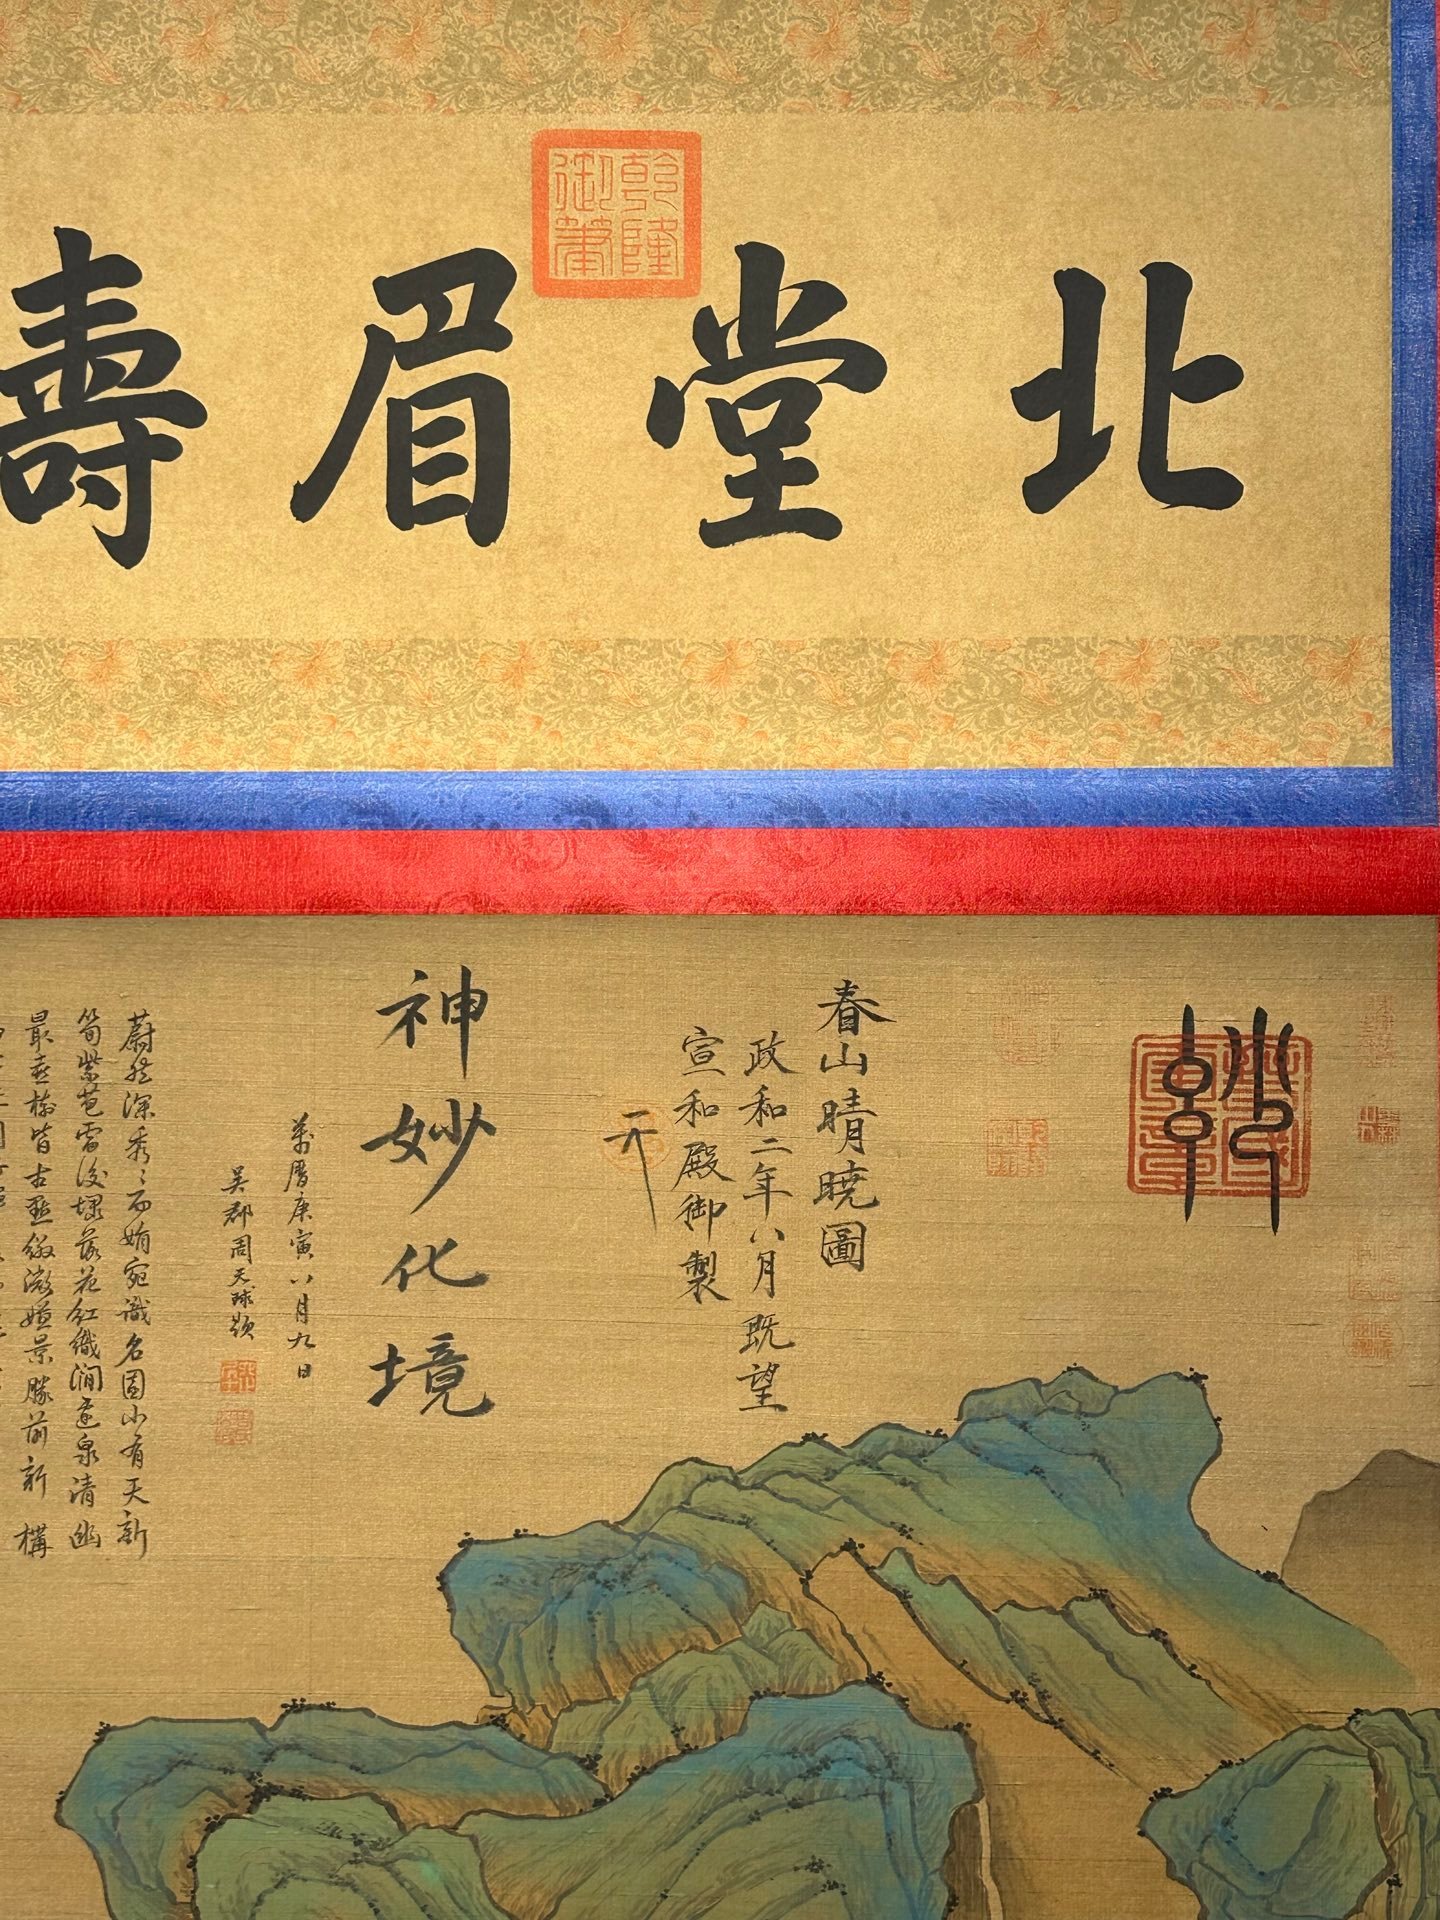 北堂眉壽
乾隆
御筆
春山晴曉圖
政和二年八月既望
宣和殿御製
神妙化境
萬曆庚寅八月九日
吳郡周天球題
蔚然深秀秀而娟宛識名園小有天新
筍紫苞雷後墢落花紅織澗邊泉清幽
最喜樹皆古點綴微嫌景勝前新構